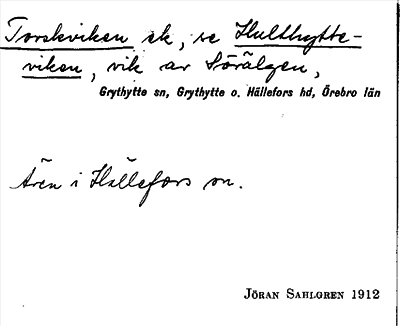 Torskviken ek, se Hulthytte-
viken, vik av Sörälgen,
Grythytte sn, Grythytte o. Hällefors hd, Örebro län
även i Hällefors sn.
JÖRAN SAHLGREN 1912